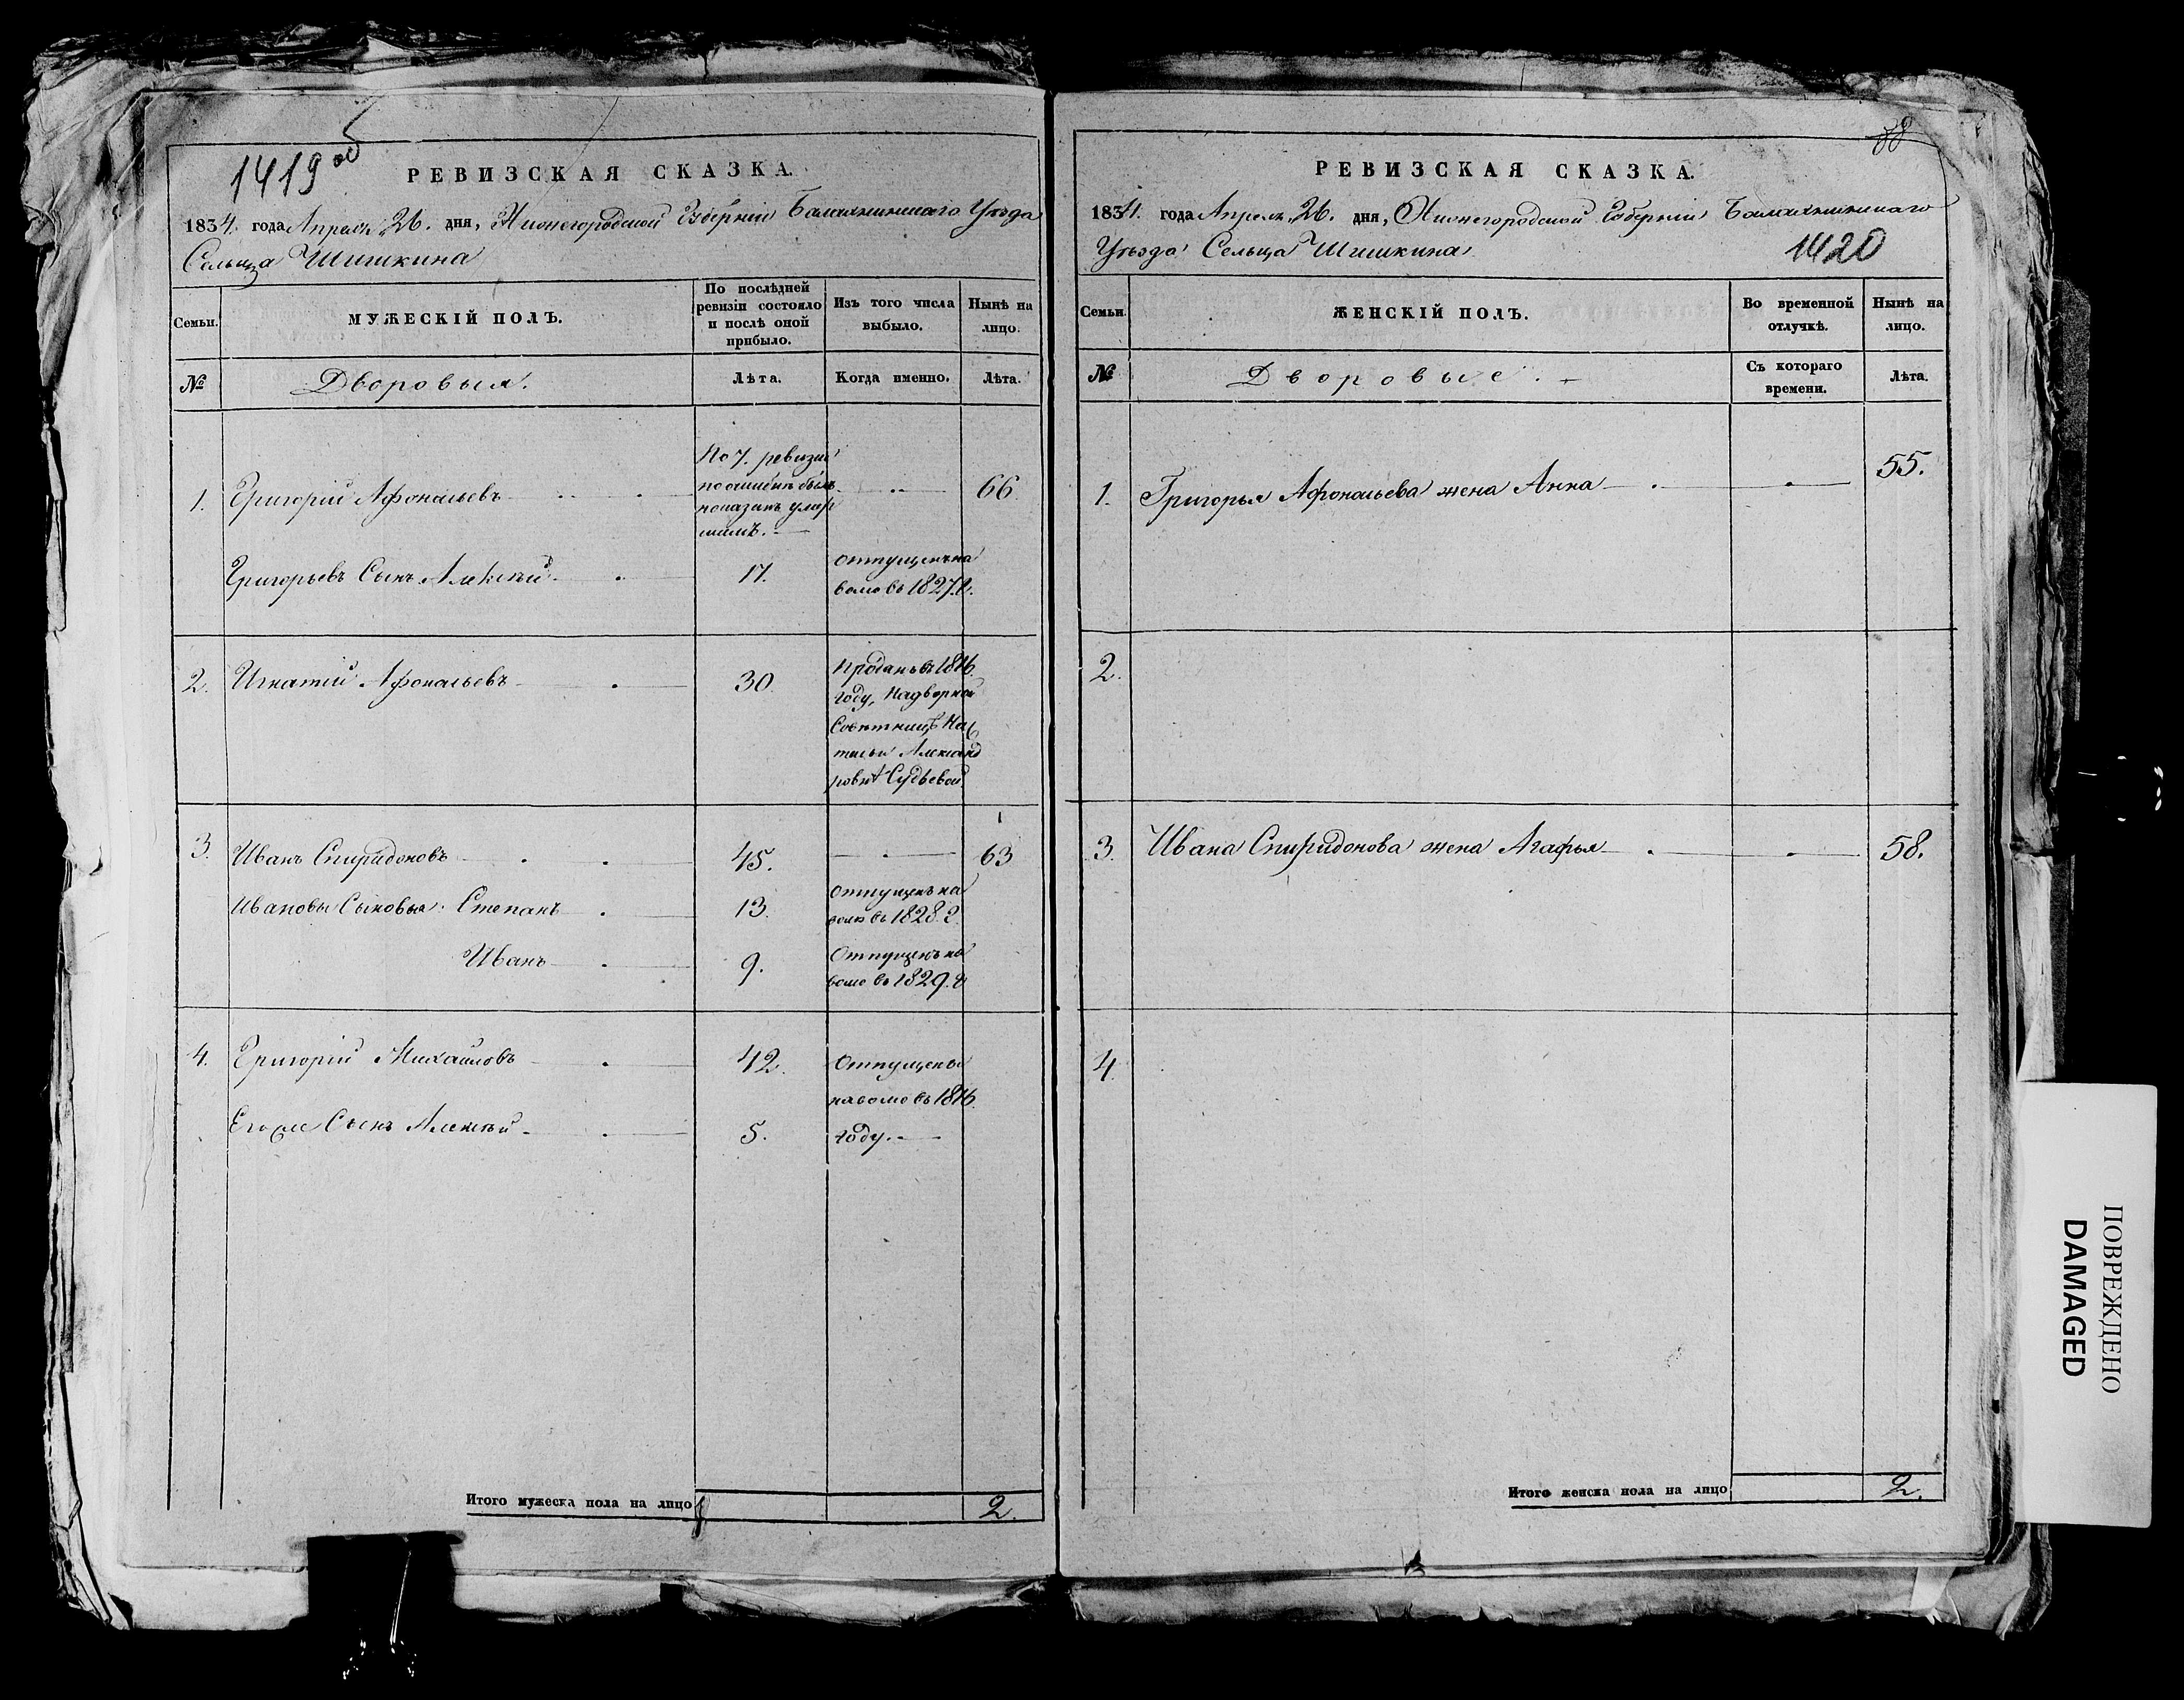 1419 об
РЕВИЗСКАЯ СКАЗКА.
1834. года Апреля 26. дня, Нижегородской Губерніи Балахнинскаго Уѣзда
Сельца Шишкина
Семьи.
МУЖЕСКІЙ ПОЛЪ.
По послѣдней
ревизіи состояло
и послѣ оной
прибыло.
Изъ того числа
выбыло.
Нынѣ на
лицо.
№
Дворовыя.
Лѣта.
Когда именно.
Лѣта.
1. Григорій Афонасьевъ
По 7. ревизіи
по ошибкѣ былъ
показанъ умер
шимъ.
66.
Григорьевъ Сынъ Алексѣй
17.
отпущенъ на
волю въ 1827. г.
2. Игнатий Афонасьевъ
30.
Проданъ въ 1816.
году, Надворной
Совѣтницѣ На
тальи Александ
ровнѣ Судьевой
3. Иванъ Спиридоновъ
45.
63
Ивановы Сыновья: Степанъ
13.
Отпущенъ на
волю въ 1828. г.
Иванъ
9.
Отпущенъ на
волю въ 1829. г.
4. Григорій Михайловъ
42.
Отпущены
на волю въ 1816.
Его же Сынъ Алексѣй
5.
году.
Итого мужеска пола на лицо
2.
88
РЕВИЗСКАЯ СКАЗКА.
1834. года Апреля, 26. дня, Нижегородской Губерніи Балахнинскаго
Уѣзда Сельца Шишкина
1420
Семьи.
ЖЕНСКІЙ ПОЛЪ.
Во временной
отлучкѣ.
Нынѣ на
лицо.
№
Дворовые.
Съ котораго
времени.
Лѣта.
1. Григорья Афонасьева жена Анна
55.
2.
3. Ивана Спиридонова жена Агафья
58.
4.
Итого женска пола на лицо
2.
ПОВРЕЖДЕНО
DAMAGED